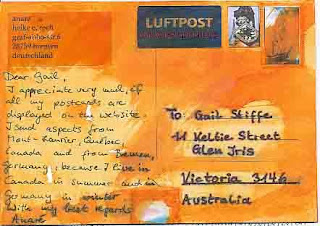 André
deutschland
LUFTPOST
Dear Gail,
I appreciate very much, if
all my postcards are
displayed on the website.
I send aspects from
Mont-Laurier, Québec,
Canada and from Bremen,
Germany, because I live in
Canada in summer and in
Germany in winter
With my best regards
André
To: Gail Stiffe
11 Keltie Street
Glen Iris
Victoria 3146
Australia